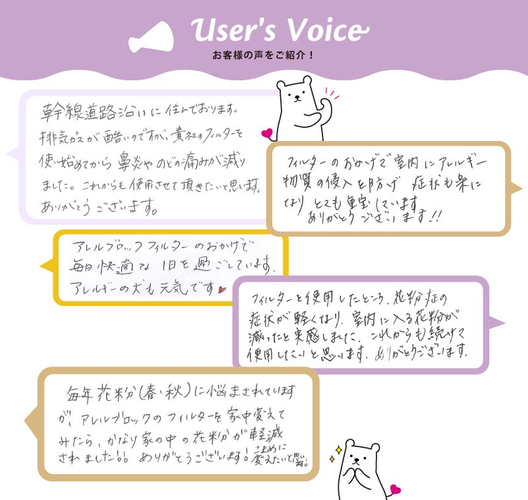 User's Voice
お客様の声をご紹介！
幹線道路沿いに住んでおります。
排気ガスが酷いのですが、貴社のフィルターを
使い始めてから鼻炎やのどの痛みが減り
ました。これからも使用させて頂きたいと思います。
ありがとうございます。
フィルターのおかげで室内にアレルギー
物質の侵入を防げ 症状も楽に
なり とても重宝しています
ありがとうございます!!
アレルブロックフィルターのおかげで
毎日快適な1日を過ごしています。
アレルギーの犬も元気です♥
フィルターを使用したところ、花粉症の
症状が軽くなり、室内に入る花粉が
減ったと実感しました。これからも続けて
使用したいと思います。ありがとうございます。
毎年花粉(春・秋)に悩まされています
が、アレルブロックのフィルターを家中変えて
みたら、かなり家の中の花粉が軽減
されました!! ありがとうございます! こまめに
変えたいと思います。